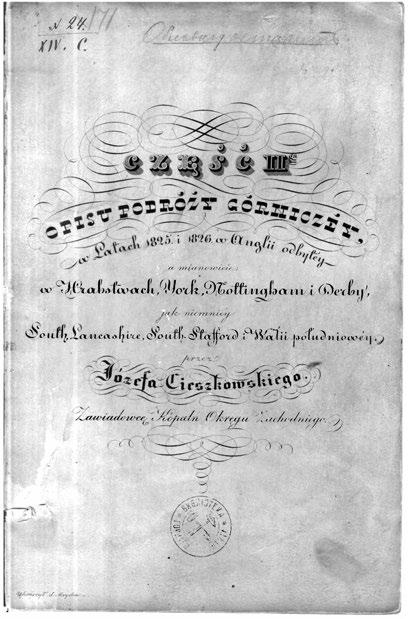 N 24.
XIV. C.
171
CZĘŚĆ IIga
OPISU PODRÓŻY GÓRNICZÉY,
w Latach 1825. i 1826. w Anglii odbytéy
a mianowicie:
w Hrabstwach, York, Nottingham i Derby,
jak niemniéy
South, Lancashire, South, Stafford i Walii południowéy.
przez
Józefa Cieszkowskiego.
Zawiadowcę Kopaln Okręgu Zachodniego.
BIBLIOTEKA